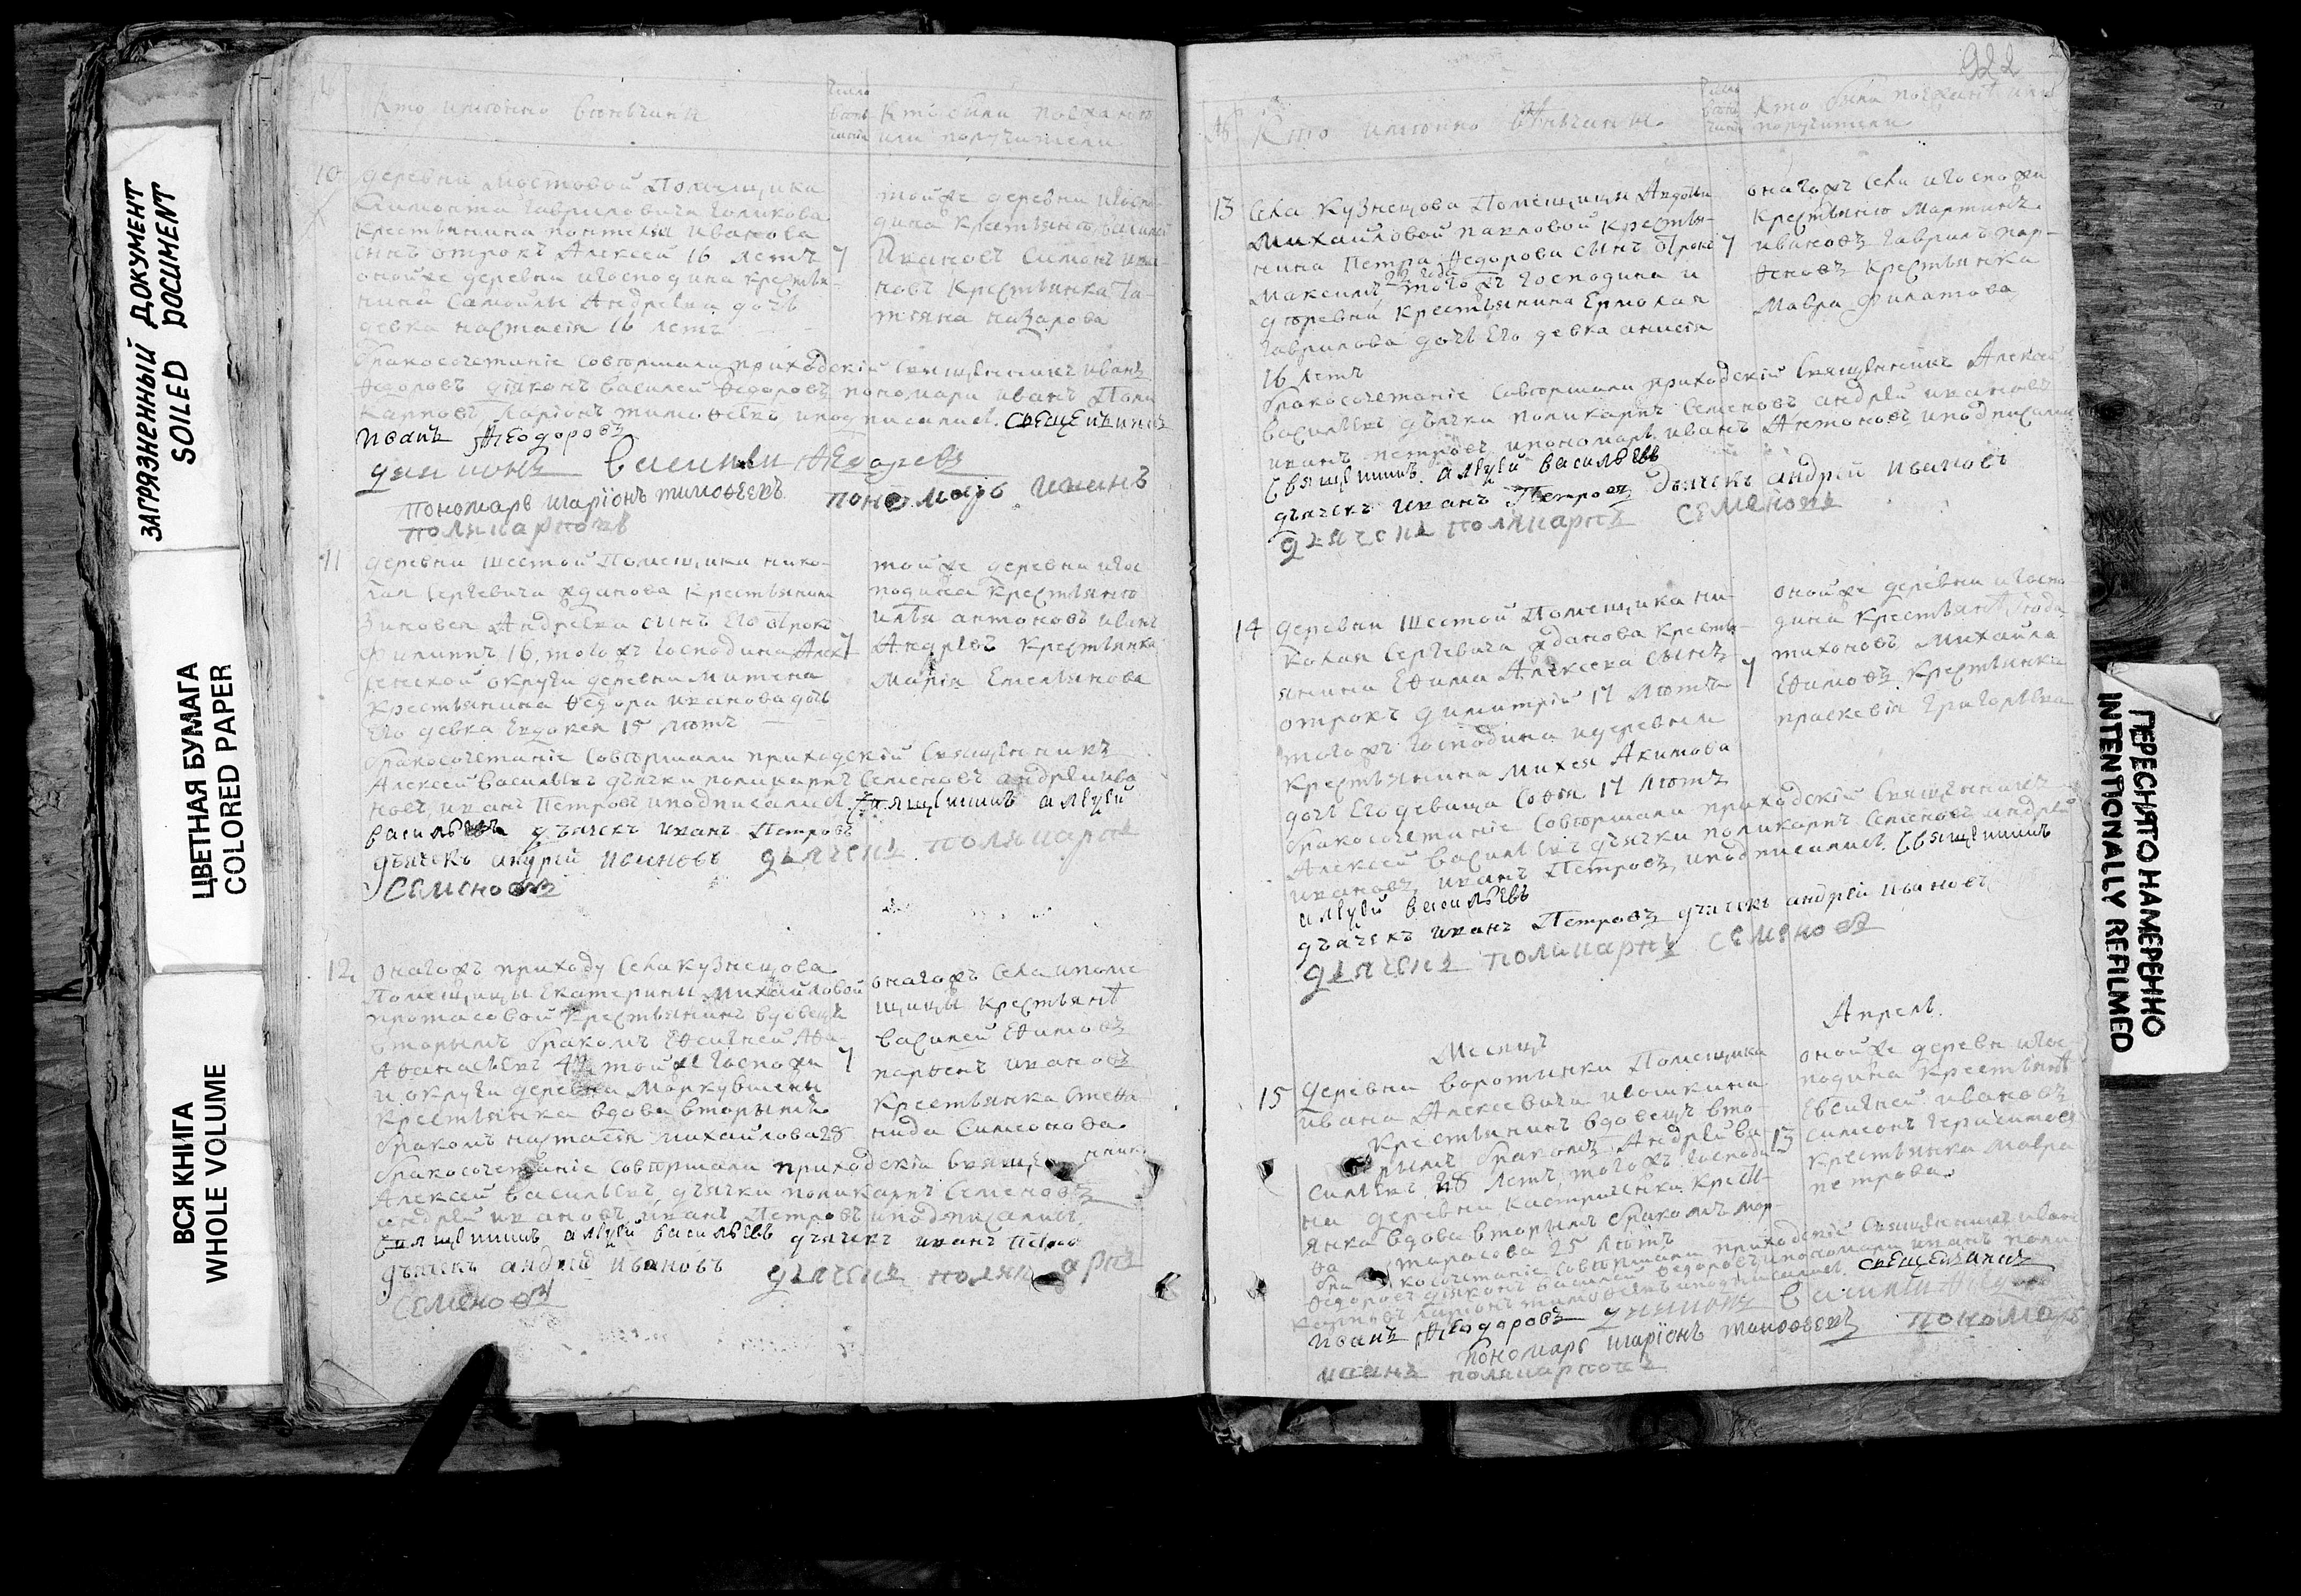 ЗАГРЯЗНЕННЫЙ ДОКУМЕНТ
SOILED DOCUMENT
ЦВЕТНАЯ БУМАГА
COLORED PAPER
ВСЯ КНИГА
WHOLE VOLUME
Кто имянно венчаны
Кто были поезжаня
или поручители
10
деревни Мостовой Помещика
Гавриловича Голикова
крестьянина Пантелея Иванова
сынъ отрокъ Алексей 16 летъ 7
оной же деревни и господина крестья-
нина Самойлы Андреева дочь
девка настасія 16 летъ
той же деревни и госпо-
дина крестьяне василей
Ивановъ Симонъ ива-
новъ крестьянка та-
тияна назарова
бракосочетаніе совершали приходскій священникъ иванъ
Ѳедоровъ діяконъ василей Ѳедоровъ пономари иванъ Поли
карповъ ларіонъ тимоѳеевъ и подписались. священникъ
Иванъ Ѳеодоровъ
дияконъ василей Ѳедоровъ
пономарь иларіонъ тимоѳеевъ пономарь иванъ
поликарповъ
11
деревни шестой Помещика нико-
лая Сергевича жданова крестьянина
Зиновея Андреева сынъ его отрокъ
Филиппъ 16, того жъ господина 7
округи деревни Митина
крестьянина Ѳедора иванова дочь
его девка Евдокея 15 летъ
той же деревни и гос
подина крестьяне
илья антоновъ иванъ
Андреевъ крестьянка
Марія Емельянова
бракосочетаніе совершали приходскій священникъ
Алексей васильевъ дьячки поликарпъ Семеновъ андрей ива
новъ, иванъ Петровъ и подписались. священникъ алексей
васильевъ дьячекъ иванъ Петровъ
дьячекъ андрей ивановъ дьячекъ поликарпъ
Семеновъ
12
онагожъ приходу села кузнецова
Помещицы Екатерины Михайловой
протасовой крестьянинъ вдовецъ
вторымъ бракомъ Евсигней Аѳа
Аѳанасьевъ той же госпожи 7
и округи деревни
крестьянка вдова вторымъ
бракомъ настасія михайлова 28
онагожъ села и поме
щицы крестьяне
василей Еѳимовъ
парѳенъ ивановъ
крестьянка степа
нида Симонова
бракосочетаніе совершали приходскій священникъ
Алексей васильевъ, дьячки поликарпъ Семеновъ
андрей ивановъ, иванъ Петровъ и подписались.
священникъ алексей васильевъ дьячекъ иванъ Петровъ
дьячекъ андрей ивановъ дьячекъ поликарпъ
Семеновъ
922
Кто имянно венчаны
Кто были поезжаня или
поручители
13
села кузнецова Помещицы Авдотьи
Михайловой павловой крестья-
нина Петра Ѳедорова сынъ отрокъ 7
Максимъ того жъ господина и
деревни крестьянина Ермолая
Гаврилова дочь его девка анисія
16 летъ
онагожъ села и госпожи
крестьяне Мартинъ
ивановъ гаврилъ пар-
ѳеновъ крестьянка
Мавра филатова
бракосочетаніе совершали приходскій священникъ Алексей
васильевъ дьячки поликарпъ Семеновъ андрей ивановъ
иванъ петровъ и пономарь иванъ Антоновъ и подписались
священникъ алексей васильевъ
дьячекъ иванъ Петровъ дьячекъ андрей ивановъ
дьячекъ поликарпъ Семеновъ
14
деревни Шестой Помещика ни-
колая Сергевича жданова кресть-
янина Еѳима Алексеева сынъ 7
отрокъ Димитрій 17 летъ
того жъ господина и деревни
крестьянина Михея Акимова
дочь его девица Соѳия 17 летъ
оной же деревни и госпо-
дина крестьяне
тихоновъ Михайла
Еѳимовъ крестьянка
праскевія Григорьева
бракосочетаніе совершали приходскій священникъ
Алексей васильевъ дьячки поликарпъ Семеновъ андрей
ивановъ, иванъ Петровъ, и подписались. священникъ
алексей васильевъ
дьячекъ иванъ Петровъ дьячекъ андрей ивановъ
дьячекъ поликарпъ Семеновъ
Месяцъ Апрель.
15
деревни воротынки Помещика
ивана Алексеевича ивошкина
крестьянинъ вдовецъ вто-
рымъ бракомъ Андрей ва 13
сильевъ, 28 летъ, того жъ господи
на деревни крест-
янка вдова вторымъ бракомъ мар-
ѳа тарасова 25 летъ
оной же деревни и гос-
подина крестьяне
Евсигней ивановъ
симеонъ герасимовъ
крестьянка Мавра
петрова.
бракосочетаніе совершали приходскій священникъ иванъ
Ѳедоровъ діяконъ василей Ѳедоровъ и пономари иванъ поли
карповъ ларіонъ тимоѳеевъ и подписались. священникъ
Иванъ Ѳеодоровъ дияконъ василей Ѳедоровъ
пономарь иларіонъ тимоѳеевъ пономарь
иванъ поликарповъ
ПЕРЕСНЯТО НАМЕРЕННО
INTENTIONALLY REFILMED